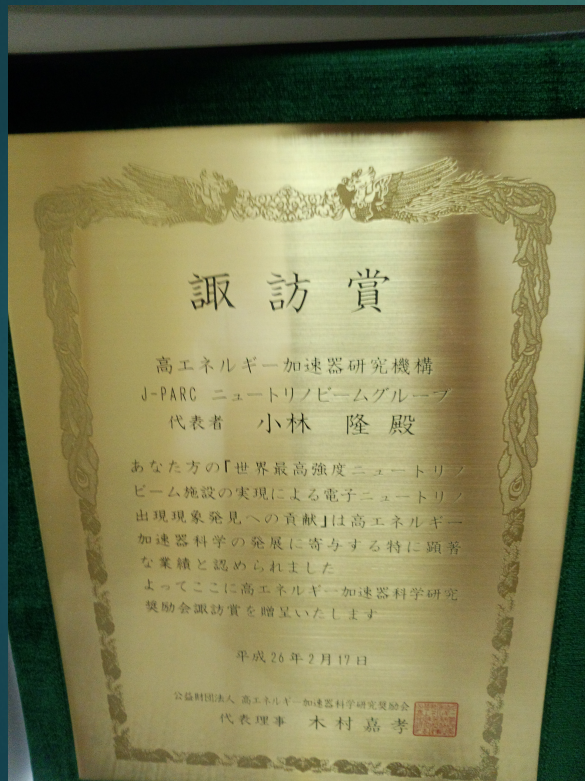 諏訪賞
高エネルギー加速器研究機構
J-PARC ニュートリノビームグループ
代表者 小林 隆 殿
あなた方の「世界最高強度ニュートリノ
ビーム施設の実現による電子ニュートリノ
出現現象発見への貢献」は高エネルギー
加速器科学の発展に寄与する特に顕著
な業績と認められました
よってここに高エネルギー加速器科学研究
奨励会諏訪賞を贈呈いたします
平成26年2月17日
公益財団法人 高エネルギー加速器科学研究奨励会
代表理事 木村嘉孝